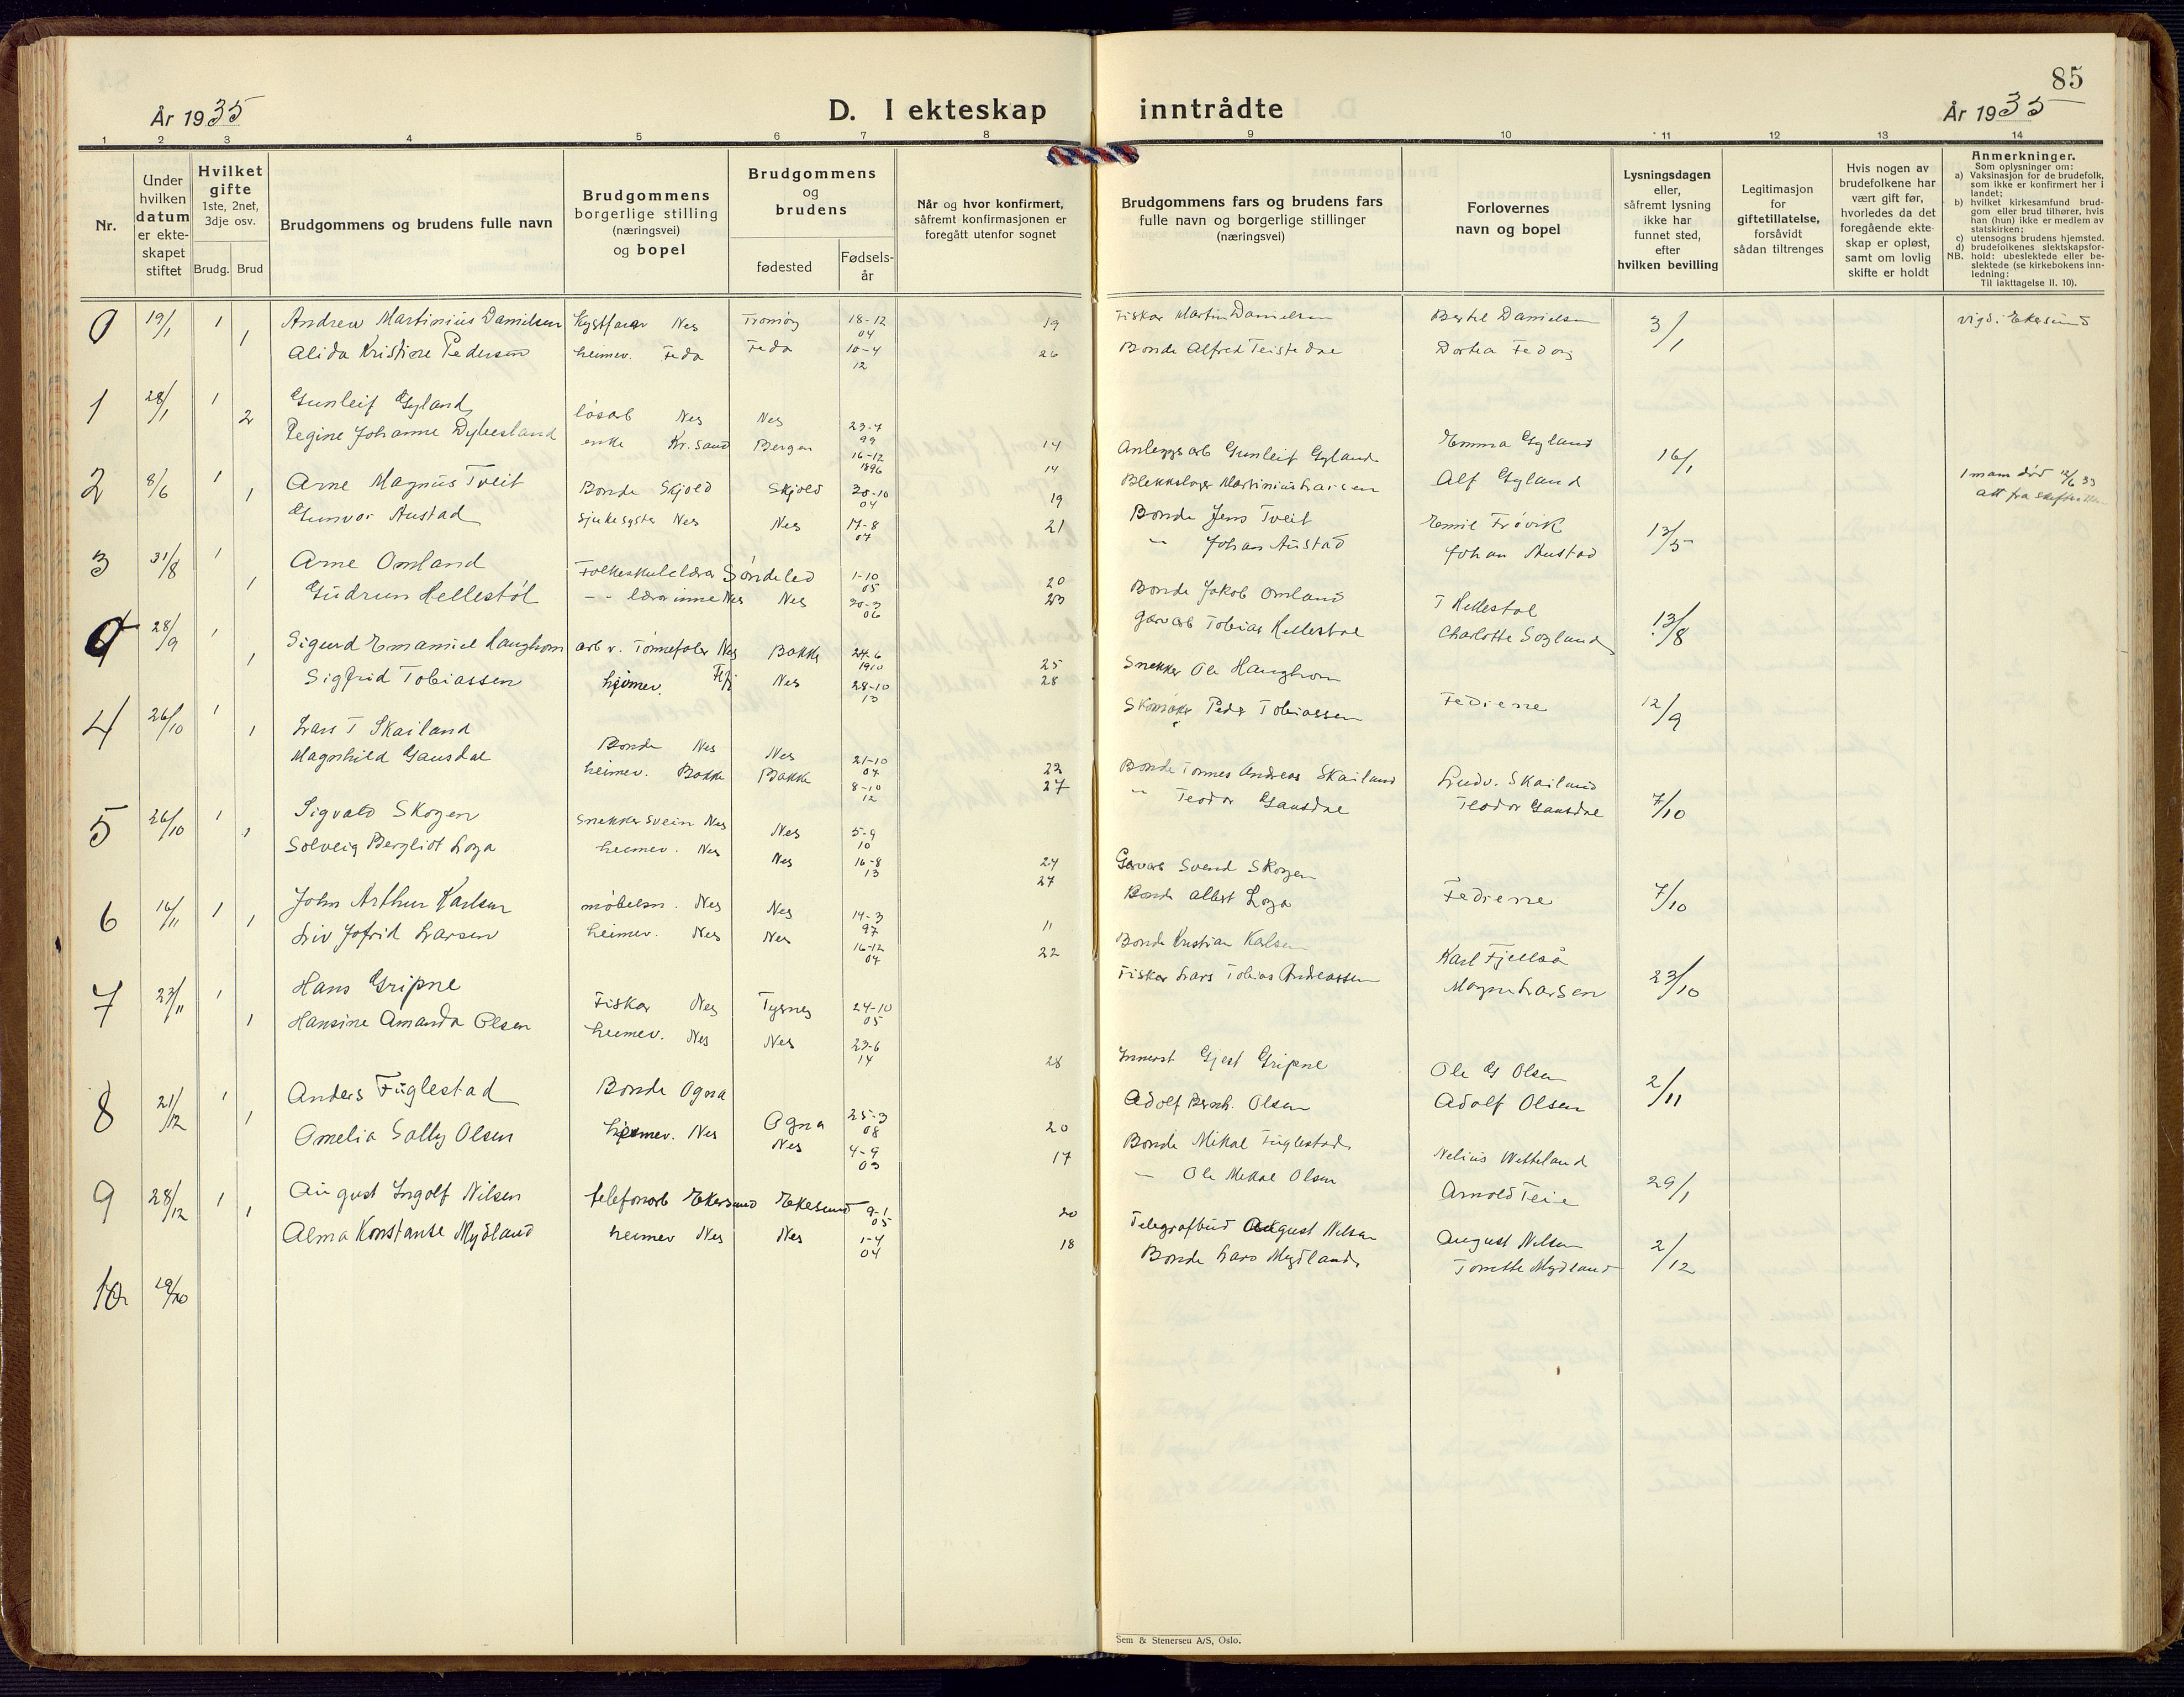 85
År 1935
D. I ekteskap inntrådte
År 1935
1 2 3 4 5 6 7 8 9 10 11 12 13 14
Nr.
Under hvilken datum er ekteskapet stiftet
Hvilket gifte 1ste, 2net, 3dje osv.
Brudg. Brud
Brudgommens og brudens fulle navn
Brudgommens borgerlige stilling (næringsvei) og bopel
Brudgommens og brudens
fødested
Fødselsår
Når og hvor konfirmert, såfremt konfirmasjonen er foregått utenfor sognet
Brudgommens fars og brudens fars fulle navn og borgerlige stillinger (næringsvei)
Forlovernes navn og bopel
Lysningsdagen eller, såfremt lysning ikke har funnet sted, efter hvilken bevilling
Legitimasjon for giftetillatelse, forsåvidt sådan tiltrenges
Hvis nogen av brudefolkene har vært gift før, hvorledes da det foregående ekteskap er opløst, samt om lovlig skifte er holdt
Anmerkninger.
Som oplysninger om:
a) Vaksinasjon for de brudefolk, som ikke er konfirmert her i landet;
b) hvilket kirkesamfund brudgom eller brud tilhører, hvis han (hun) ikke er medlem av statskirken;
c) utensogns brudens hjemsted.
d) brudefolkenes slektskapsforhold: ubeslektede eller beslektede (se kirkebokens innledning:
NB.
Til iakttagelse II. 10).
0 19/1 1 Andrew Martinius Danielsen Kystfarer Nes Tromøy 18-12 04 19 Fisker Martin Danielsen Bertel Danielsen 3/1 vigd i Ekersund
1 Alida Kristine Pedersen heimev. Feda Feda 10-4 12 26 Bonde Alfred Teistedal Dortea Fedog
1 28/1 1 Gunleif Gyland løsarb Nes Nes 23-7 99 14 Anleggsarb Gunleif Gyland Emma Gyland 16/1
2 Regine Johanne Dybesland enke Kr.sand Bergen 16-12 1896 14 Blekkslager Martinius Larsen Alf Gyland 1 mann død 12/6 33
2 8/6 1 Arne Magnus Tveit Bonde Skjold Skjold 20-10 04 19 Bonde Jens Tveit Emil Frøvik 13/5
1 Gunvor Austad Sjukesyster Nes Nes 17-8 07 21 " Johan Austad Johan Austad
3 31/8 1 Arne Omland Folkeskulelærar Søndeled 1-10 05 20 Bonde Jakob Omland T Hellestøl 13/8
1 Gudrun Hellestøl -"- lærarinne Nes Nes 30-3 06 23 Garvarb Tobias Hellestøl Charlotte Soyland
28/9 1 Sigurd Emanuel Haughom arb v. Tønnefabr Nes Bakke 24-6 1910 25 Snekker Ole Haughom Fedrene 12/9
1 Sigfrid Tobiassen heimev. Nes 28-10 13 28 Skomaker Peder Tobiassen
4 26/10 1 Lars T Skailand Bonde Nes Nes 21-10 04 22 Bonde Tønnes Andreas Skailand Ludv. Skailand 7/10
1 Magnhild Gausdal heimev. Bakke Bakke 8-10 12 27 " Teodor Gausdal Teodor Gausdal
5 26/10 1 Sigvald Skogen Snekkersvein Nes Nes 5-9 10 24 Garvarb Svend Skogen Fedrene 7/10
1 Solveig Bergliot Loga heimev. Nes Nes 16-8 13 27 Bonde Albert Loga
6 16/11 1 John Arthur Karlsen møbelsn. Nes Nes 14-3 97 11 Bonde Kristian Karlsen Karl Fjellså 23/10
1 Liv Jofrid Larsen heimev. Nes Nes 16-12 04 22 Fisker Lars Tobias Andreassen Magne Larsen
7 23/11 1 Hans Gripne Fiskar Nes Tysnes 24-10 05 Gjest Gripne Ole G Olsen 2/11
1 Hansine Amanda Olsen heimev. Nes Nes 23-6 14 28 Adolf Bernh. Olsen Adolf Olsen
8 21/12 1 Anders Fuglestad Bonde Ogna Ogna 25-3 08 20 Bonde Mikal Fuglestad Nelius Wetteland 29/1
1 Amelia Sally Olsen heimev. Nes Nes 4-9 03 17 " Ole Mikal Olsen Arnold Teie
9 28/12 1 August Ingolf Nilsen telefonarb Ekersund Ekesund 9-1 05 20 Telegrafbud August Nilsen August Nilsen 2/12
1 Alma Konstanse Mydland heimev Nes Nes 1-4 04 18 Bonde Lars Mydland Tonette Mydland
10
Sem & Stenersen A/S, Oslo.